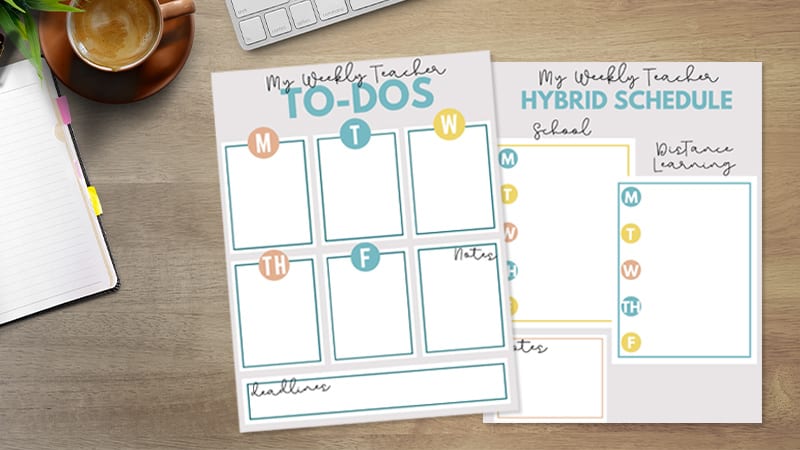 My Weekly Teacher
TO-DOS
M
T
W
TH
F
Notes
deadlines
My Weekly Teacher
HYBRID SCHEDULE
School
M
T
W
TH
F
Distance
Learning
M
T
W
TH
F
Notes